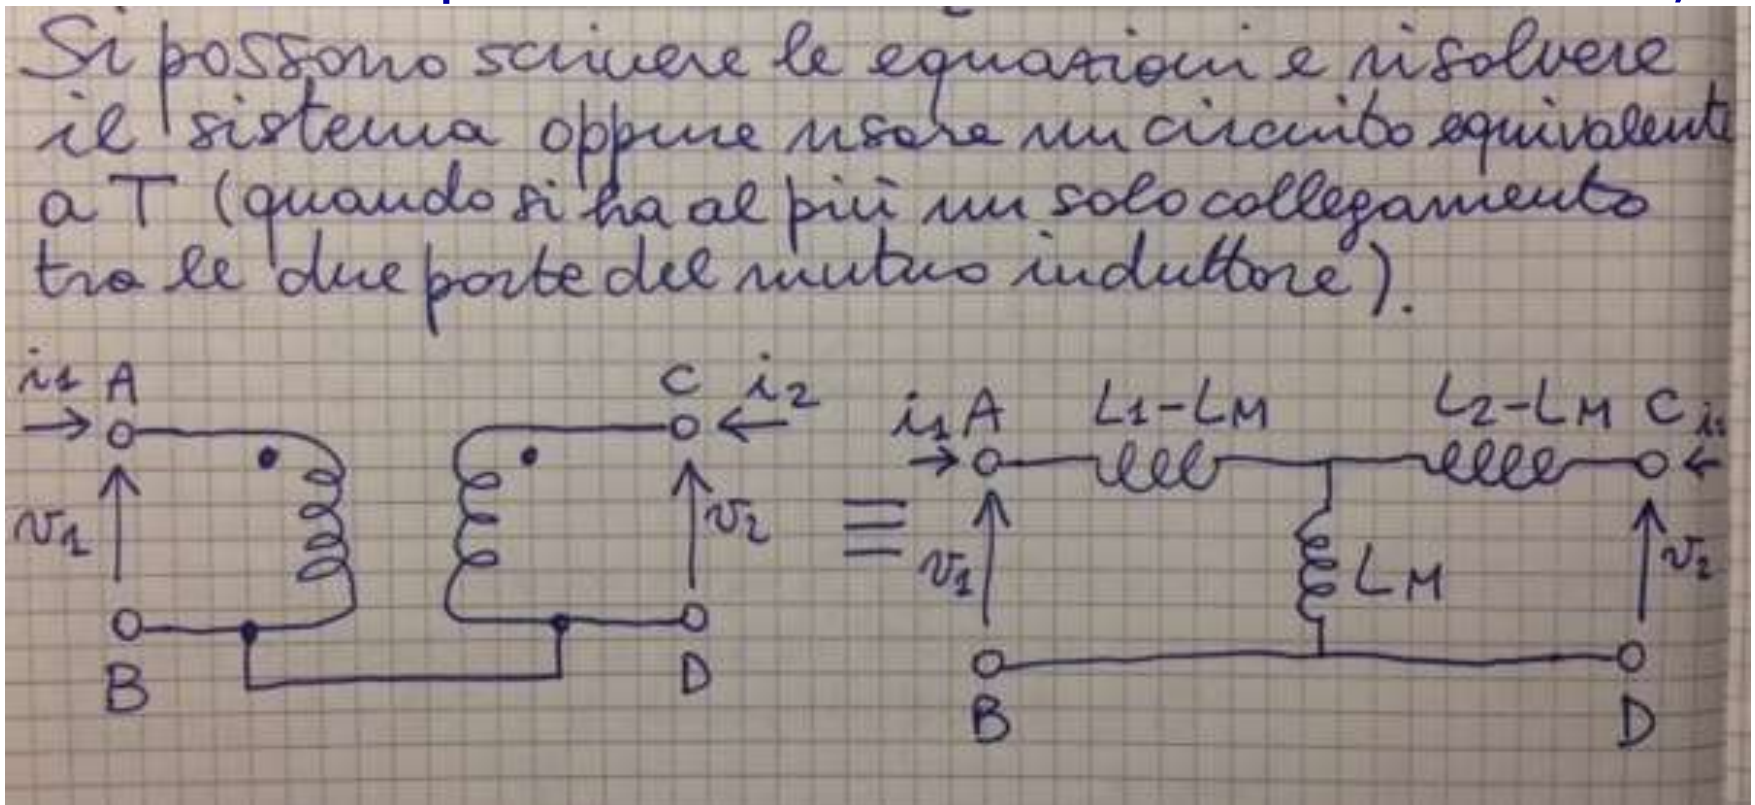 Si possono scrivere le equazioni e risolvere
il sistema oppure usare un circuito equivalente
a T (quando si ha al più un solo collegamento
tra le due porte del mutuo induttore).
i1 A C i2
v1 v2
B D
≡
i1 A L1-LM L2-LM C i2
v1 LM v2
B D